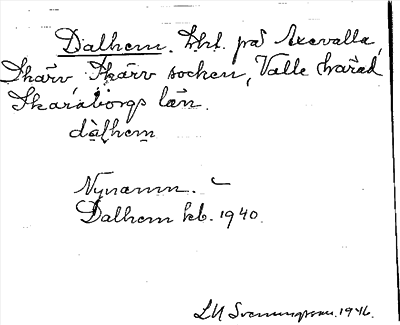 Dalhem. lht. på Axevalla,
Skärv Skärv socken, Valle härad
Skaraborgs län.
dàlhem
Nynamn.
Dalhem kb. 1940.
LN Svenungsson. 1946.